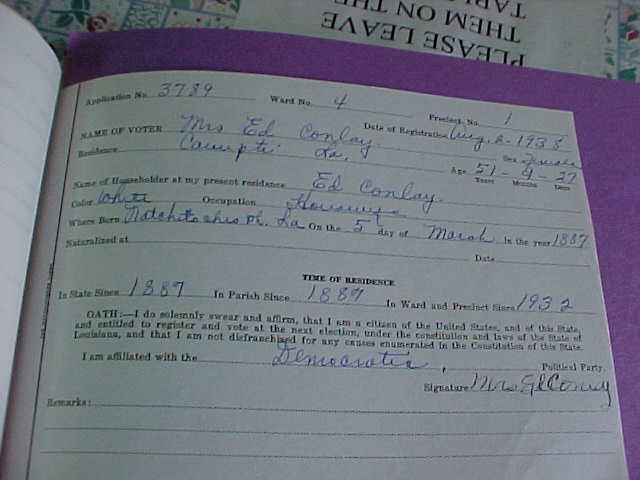 PLEASE LEAVE
THEM ON THE
Application No. 3789 Ward No. 4 Precinct No. 1
NAME OF VOTER Mrs Ed Conlay Date of Registration Aug. 2- 1938
Residence Campti La. Sex Female
Age 51 - 4 - 27
Years Months Days
Name of Householder at my present residence Ed Conlay.
Color White Occupation Housewife
Where Born Natchitoches Ph. La On the 5 day of March In the year 1887
Naturalized at Date
TIME OF RESIDENCE
In State Since 1887 In Parish Since 1887 In Ward and Precinct Since 1932
OATH:—I do solemnly swear and affirm, that I am a citizen of the United States, and of this State,
and entitled to register and vote at the next election, under the constitution and laws of the State of
Louisiana, and that I am not disfranchised for any causes enumerated in the Constitution of this State.
I am affiliated with the Democratic, Political Party.
Signature Mrs Ed Conlay
Remarks: